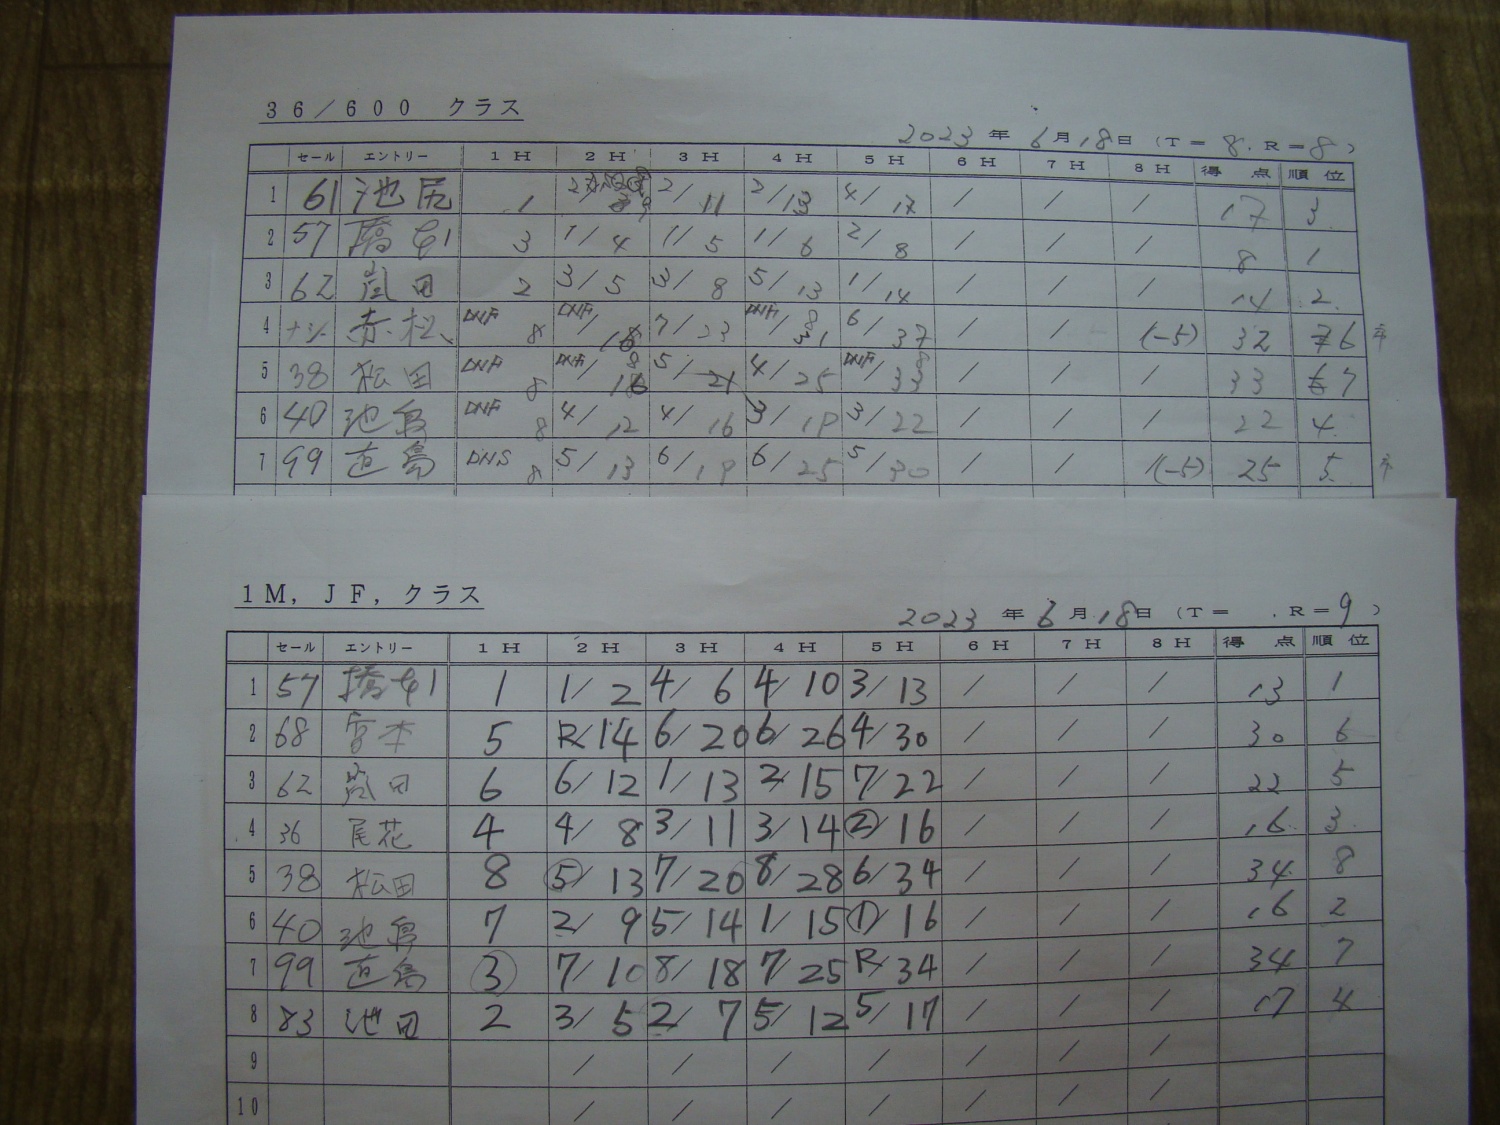 36/600 クラス
2023 年 6月18日 (T=8. R=8)
セール エントリー 1H 2H 3H 4H 5H 6H 7H 8H 得点 順位
1 61 池尻 1 2/ 2/11 2/13 4/17 / / / 17 3
2 57 3 1/4 1/5 1/6 2/8 / / / 8 1
3 62 嵐田 2 3/5 3/8 5/13 1/14 / / / 14 2
4 赤松 DNF 8 DNF/16 7/23 DNF/8 31 6/37 / / /(-5) 32 6
5 38 松田 DNF 8 DNF/8 16 5/21 4/25 DNF/8 33 / / / 33 7
6 40 池島 DNF 8 4/12 4/16 3/19 3/22 / / / 22 4
7 99 直島 DNS 8 5/13 6/19 6/25 5/30 / / /(-5) 25 5
1M, JF, クラス
2023 年 6月18日 (T= .R=9)
セール エントリー 1H 2H 3H 4H 5H 6H 7H 8H 得点 順位
1 57 1 1/2 4/6 4/10 3/13 / / / 13 1
2 68 宮本 5 R/14 6/20 6/26 4/30 / / / 30 6
3 62 嵐田 6 6/12 1/13 2/15 7/22 / / / 22 5
4 36 尾花 4 4/8 3/11 3/14 2/16 / / / 16 3
5 38 松田 8 5/13 7/20 8/28 6/34 / / / 34 8
6 40 池島 7 2/9 5/14 1/15 1/16 / / / 16 2
7 99 直島 3 7/10 8/18 7/25 R/34 / / / 34 7
8 83 池田 2 3/5 2/7 5/12 5/17 / / / 17 4
9 / / / / / / /
10 / / / / / / /